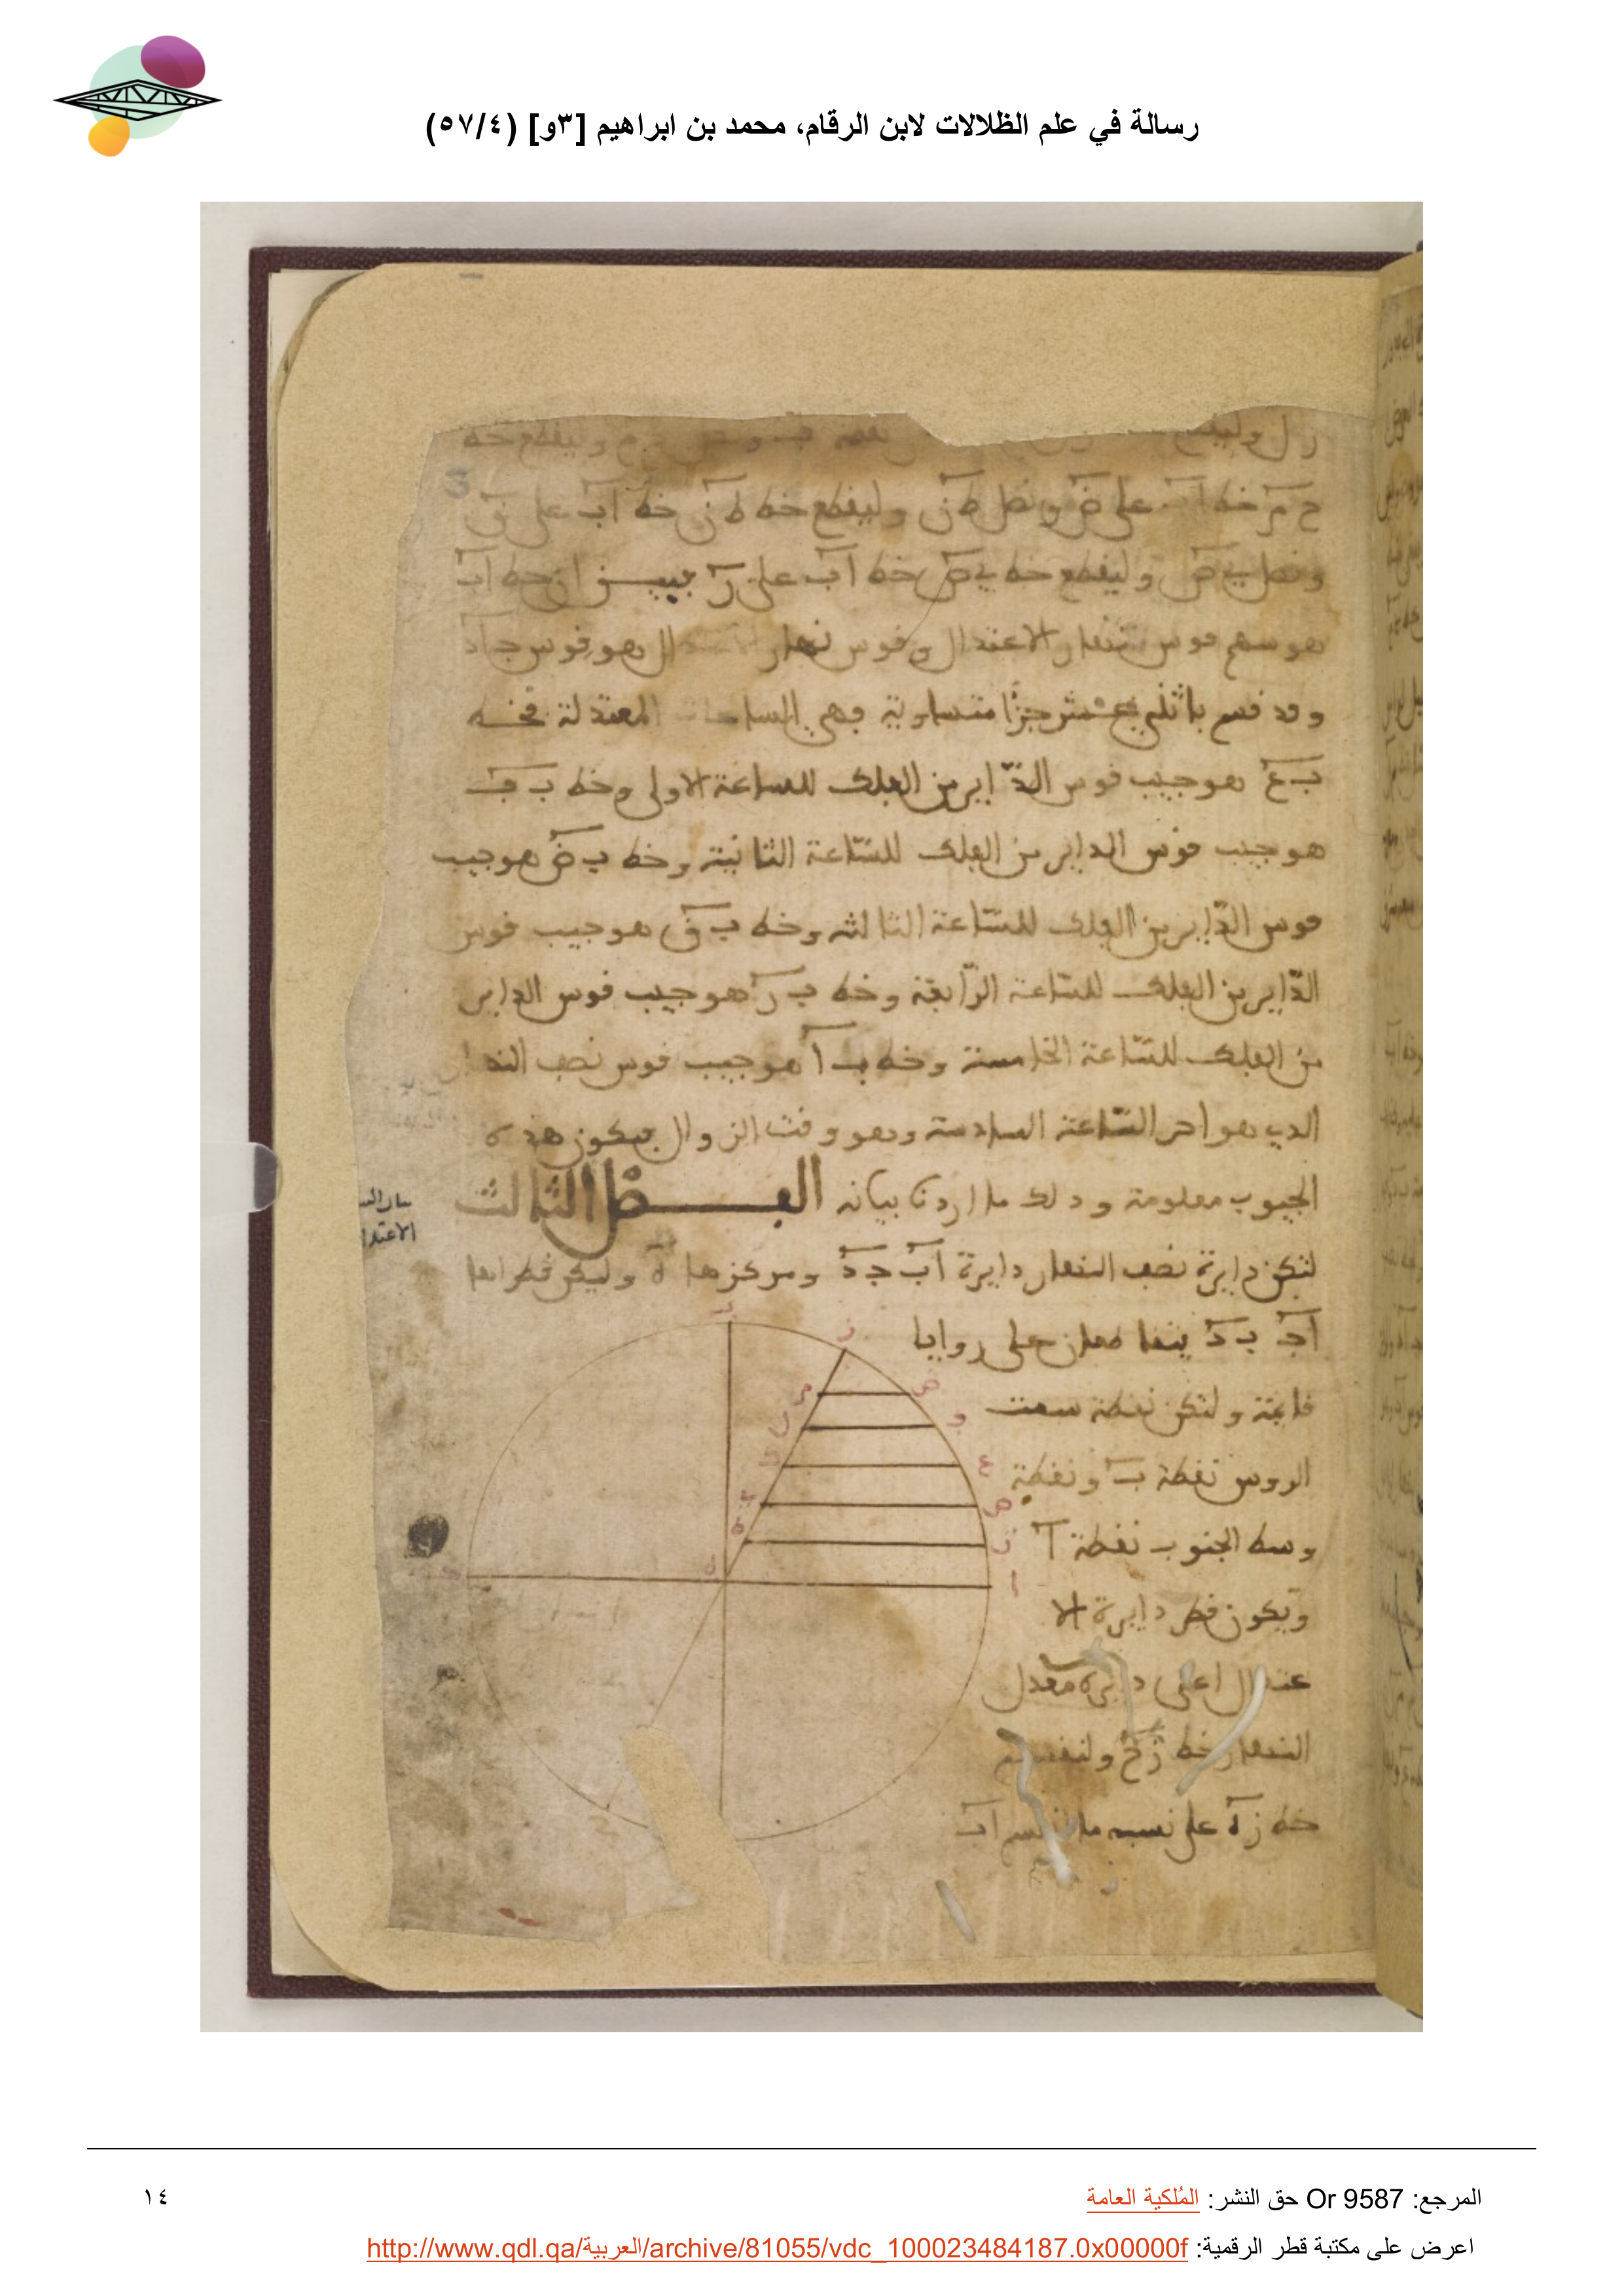 رسالة في علم الظلالات لابن الرقام، محمد بن ابراهيم [٣و] (٥٧/٤)
زل وليقطع نقطة ب وليقطع خط
ح م خط على ض ونصل ط ن وليقطع خط ط ن خط اب على ق
ونصل ي ص وليقطع خط ي ص خط اب على ر فبين ان خط اب
هو سهم قوس نهار الاعتدال وقوس نهار الاعتدال هو قوس جاد
وقد قسم باثني عشر جزًا متساوية وهي الساعات المعتدلة فخط
ب ع هو جيب قوس الدّاير من الفلك للساعة الاولى وخط ب ف
هو جيب قوس الداير من الفلك للسّاعة الثانية وخط ب ض هو جيب
قوس الدّاير من الفلك للسّاعة الثالثه وخط ب ق هو جيب قوس
الدّاير من الفلك للسّاعة الرّابعة وخط ب ر هو جيب قوس الداير
من الفلك للسّاعة الخامسة وخط ب ا هو جيب قوس نصف النهار
الدي هو اخر السّاعة السادسة وهو وقت الزوال فيكون هذه
الجيوب معلومة ودلك ما اردنا بيانه الفصل الثالث
الاعتدا
لتكن دايرة نصف النهار دايرة اب جد ومركزها ه وليكن قطراها
اج ب د يتقاطعان على زوايا
قايمة ولتكن نقطة سمت
الروس نقطة ب ونقطة
وسط الجنوب نقطة ا
ويكون قطر دايرة الا
عتدال اعني دايرة معدل
النهار خط زح ولنقسم
خط زه على نسبة ما انقسم اب
ب
ز
ص
م
ف
ل
ع
ي
ص
ط
ز
ا
ه
3
المرجع: Or 9587 حق النشر: المُلكية العامة
١٤
اعرض على مكتبة قطر الرقمية: http://www.qdl.qa/العربية/archive/81055/vdc_100023484187.0x00000f